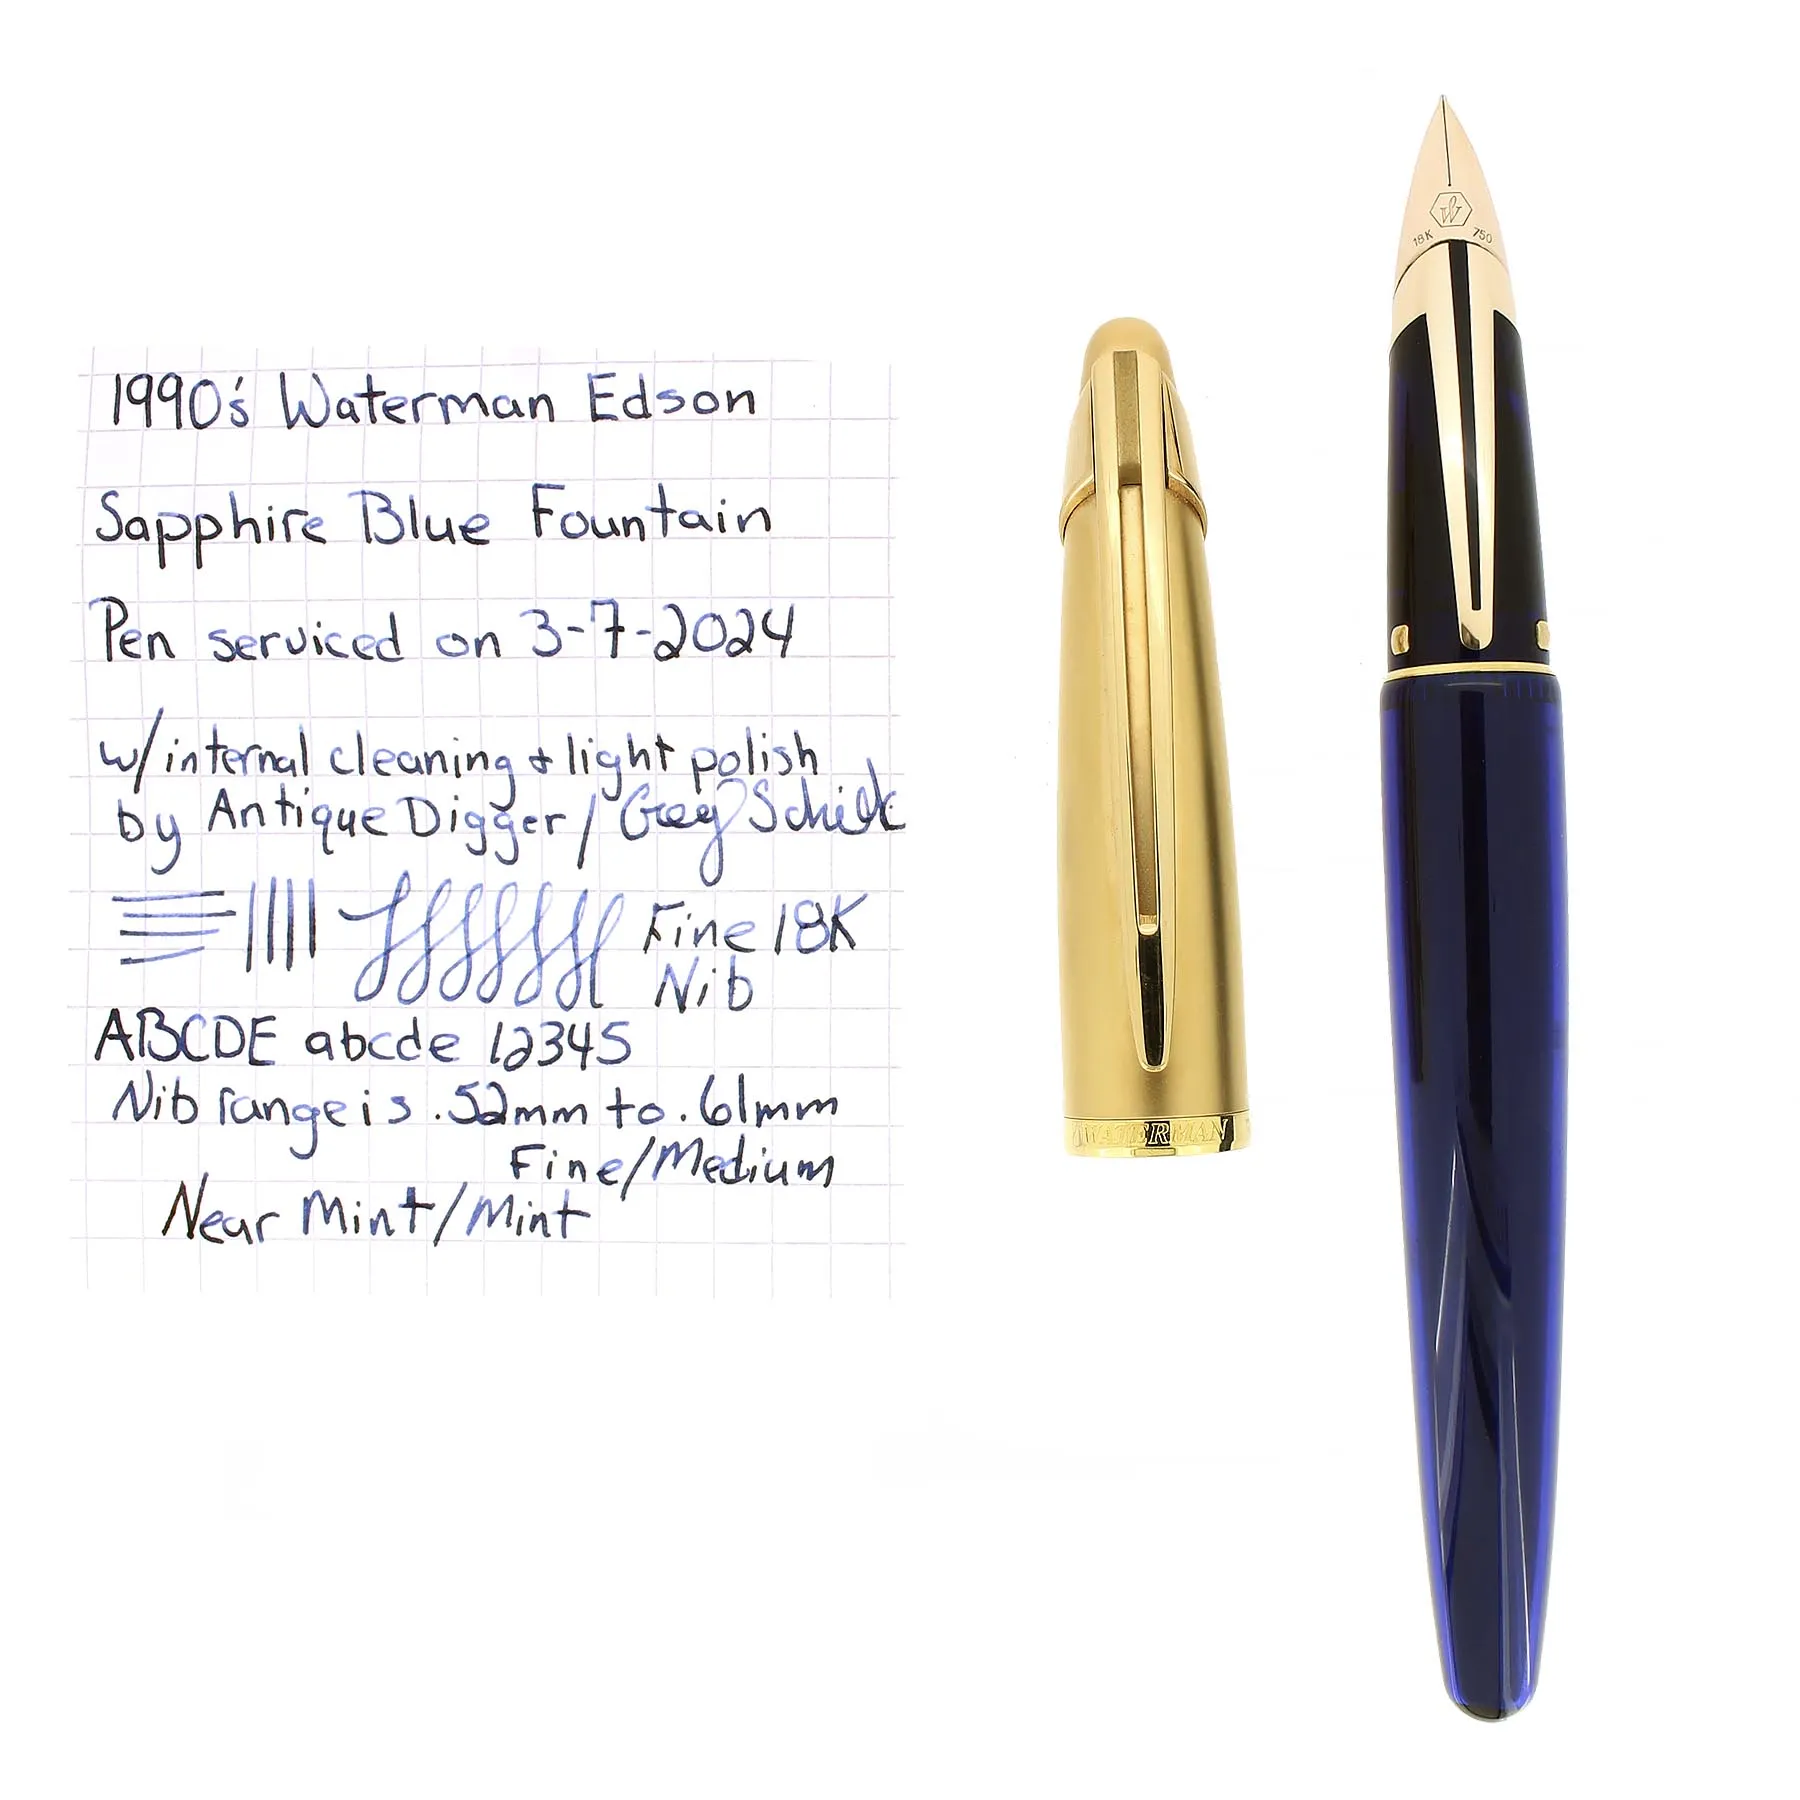 1990's Waterman Edson
Sapphire Blue Fountain
Pen serviced on 3-7-2024
w/internal cleaning & light polish
by Antique Digger / Greg
Fine 18K
Nib
ABCDE abcde 12345
Nib range is .52mm to .61mm
Fine/Medium
Near Mint/Mint
WATERMAN
W
18K 750